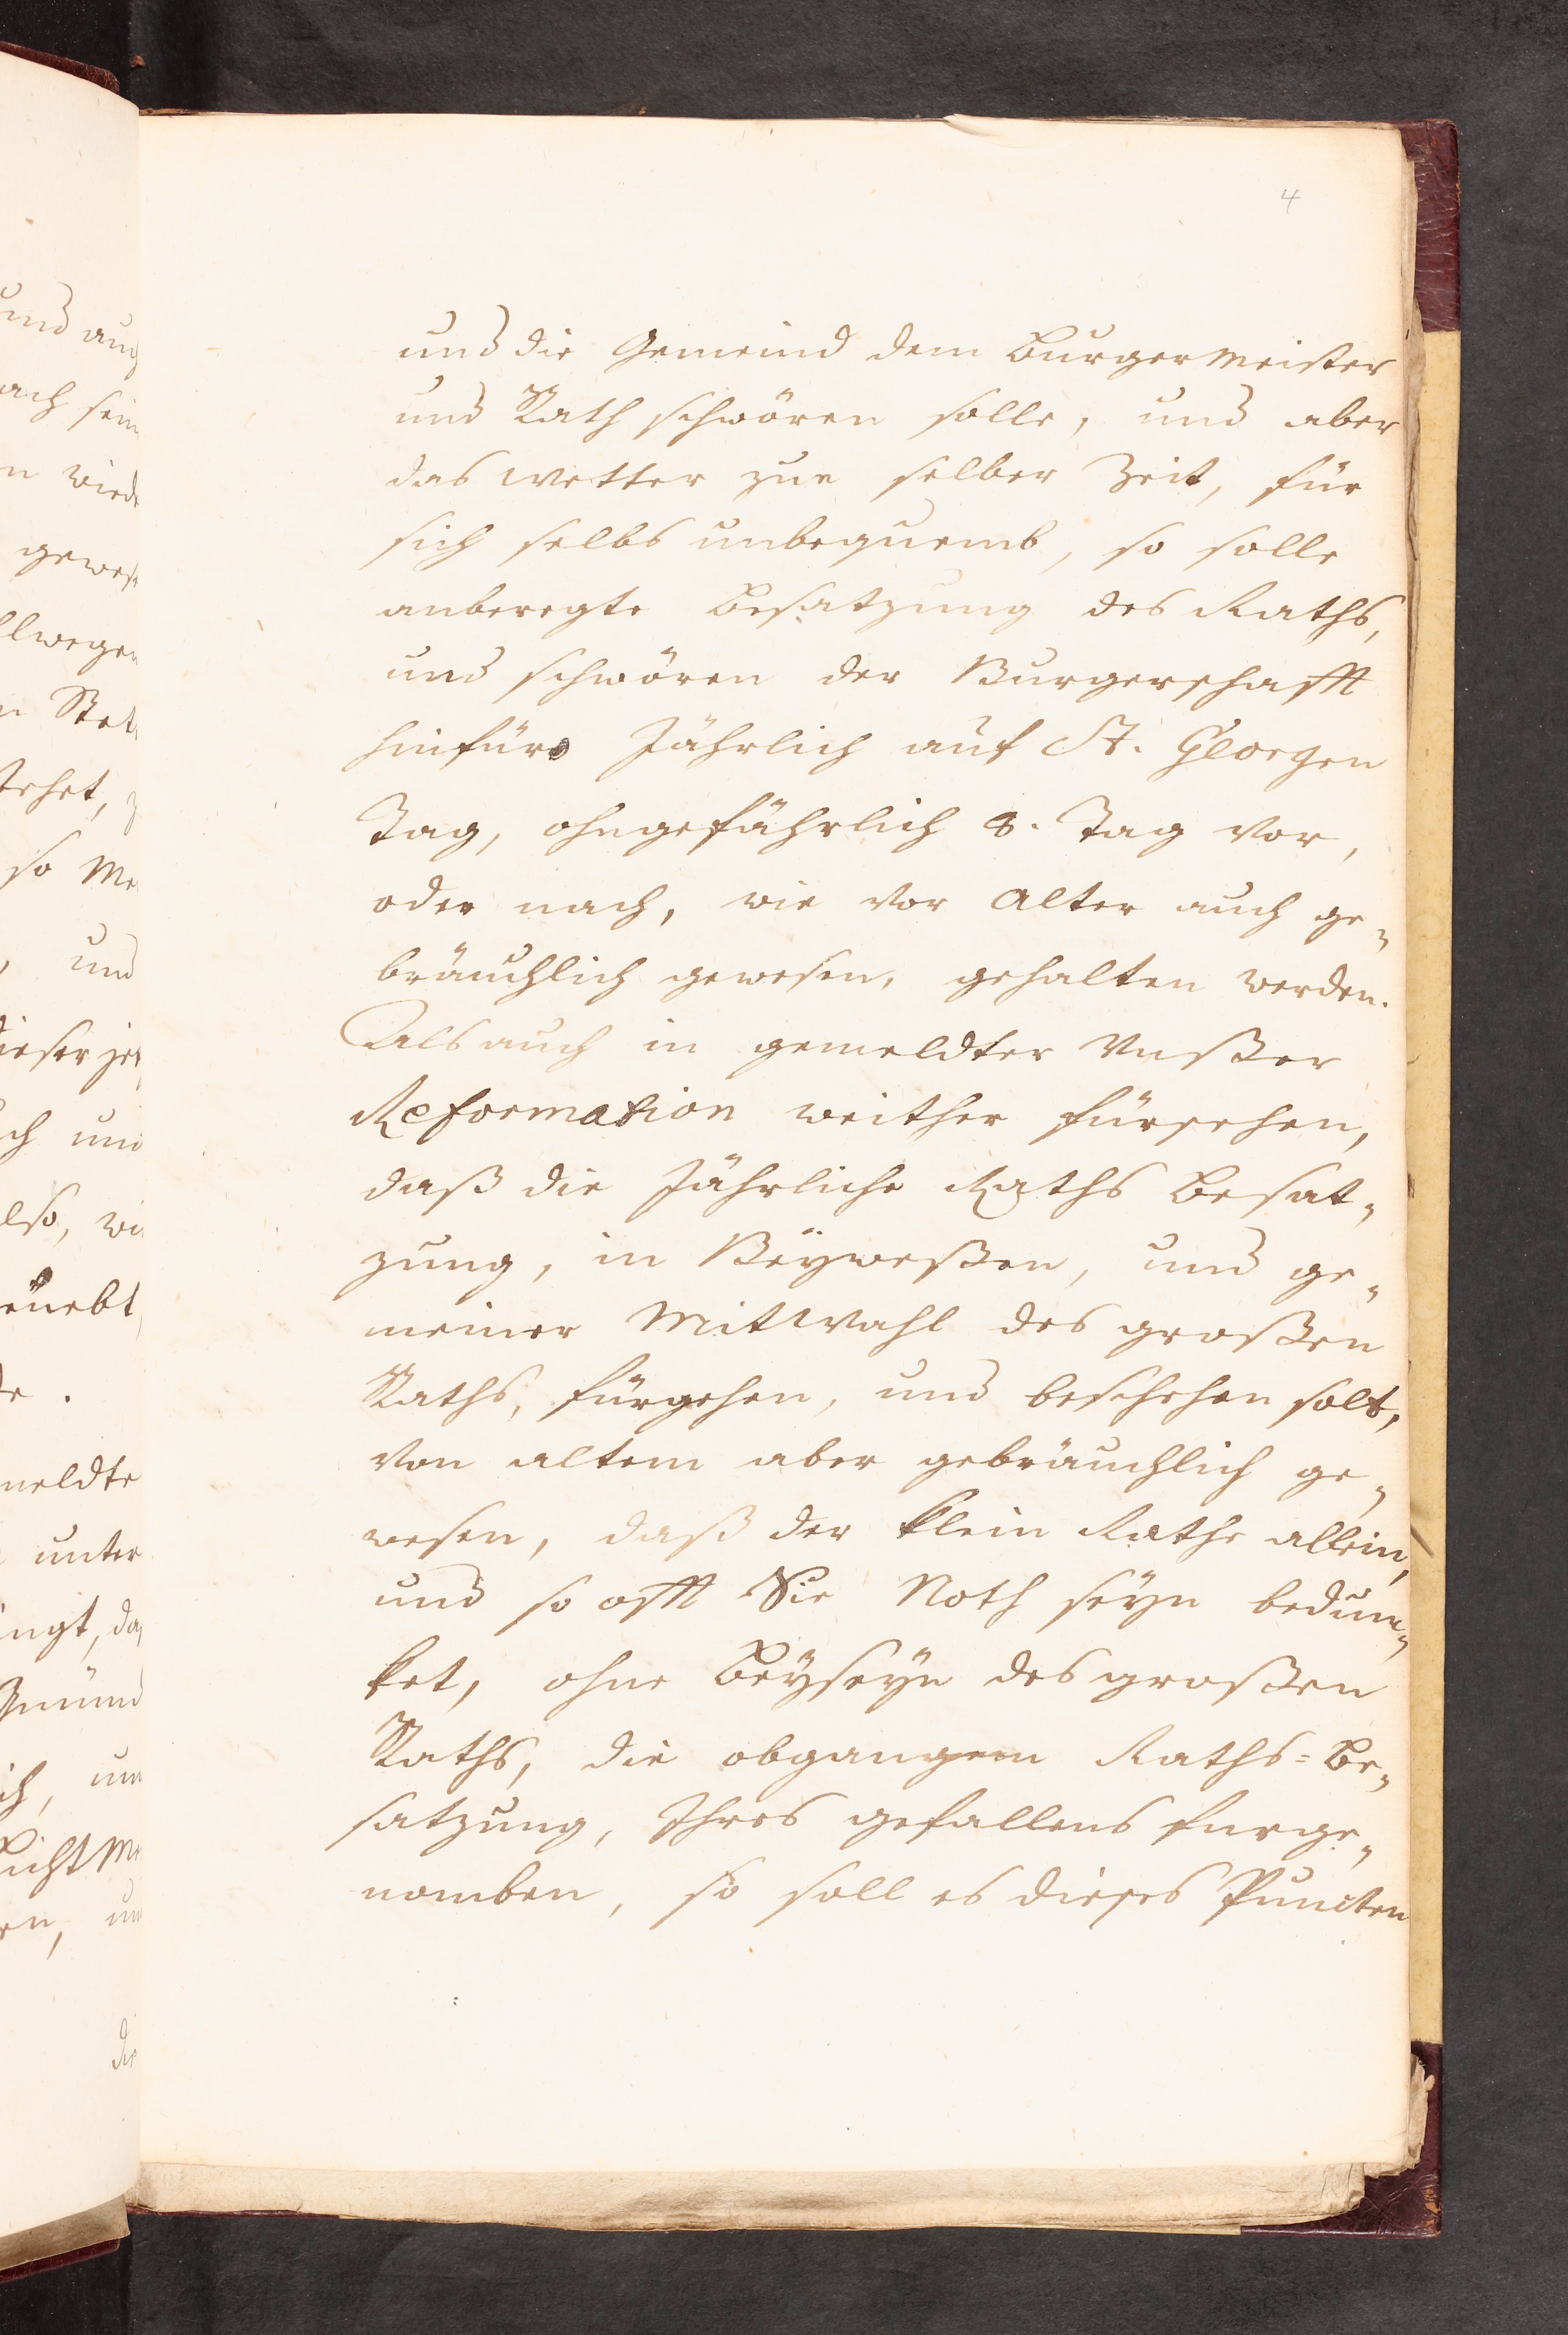 4
und die Gemeind dem Burgermeister
und Rath schwören solle, und aber
das wetter zue selber Zeit, für
sich selbs unbequemb, so solle
anberegte Besatzung des Raths,
und schwören der Burgerschafft
hinfüro Jährlich auf St. Georgen
Tag, ohngefährlich 8. Tag vor,
oder nach, wie vor Alter auch ge„
bräuchlich gewesen, gehalten werden.
Als auch in gemeldter Vnßer
Reformation weither fürsehen,
daß die Jährliche Raths Besat„
zung, in Beyweßen, und ge„
meiner Mitwahl des großen
Raths, fürgehen, und beschehen solt,
von altem aber gebräuchlich ge„
wesen, daß der klein Rathe allein,
und so offt Sie Noth seyn bedun„
ket, ohne Beyseyn des großen
Raths, die obgangen Raths=Be„
satzung, Ihres gefallens furge„
nomben, so soll es dieses Puncten